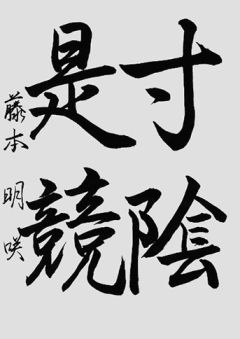 寸陰
是競
藤本明咲